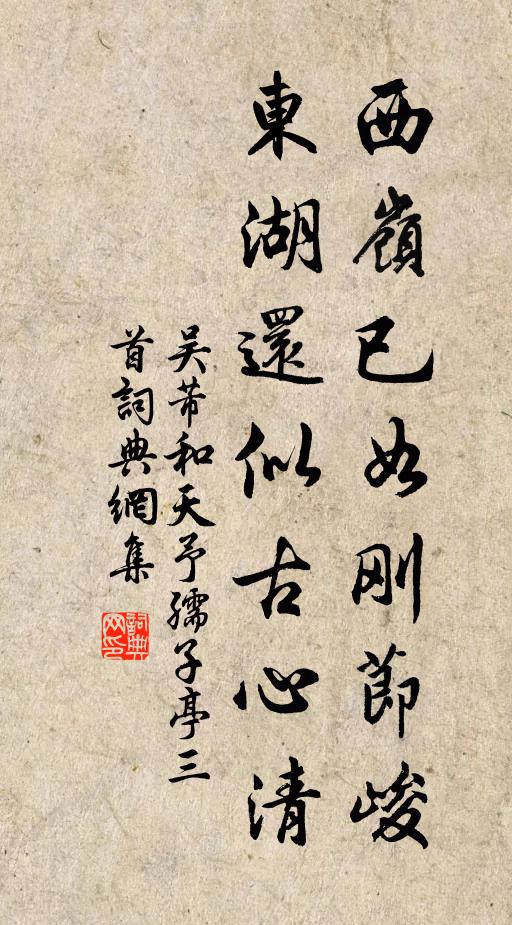 西嶺已如刚節峻
東湖還似古心清
吴芾和天予孺子亭三
首詞典網集
詞典网印